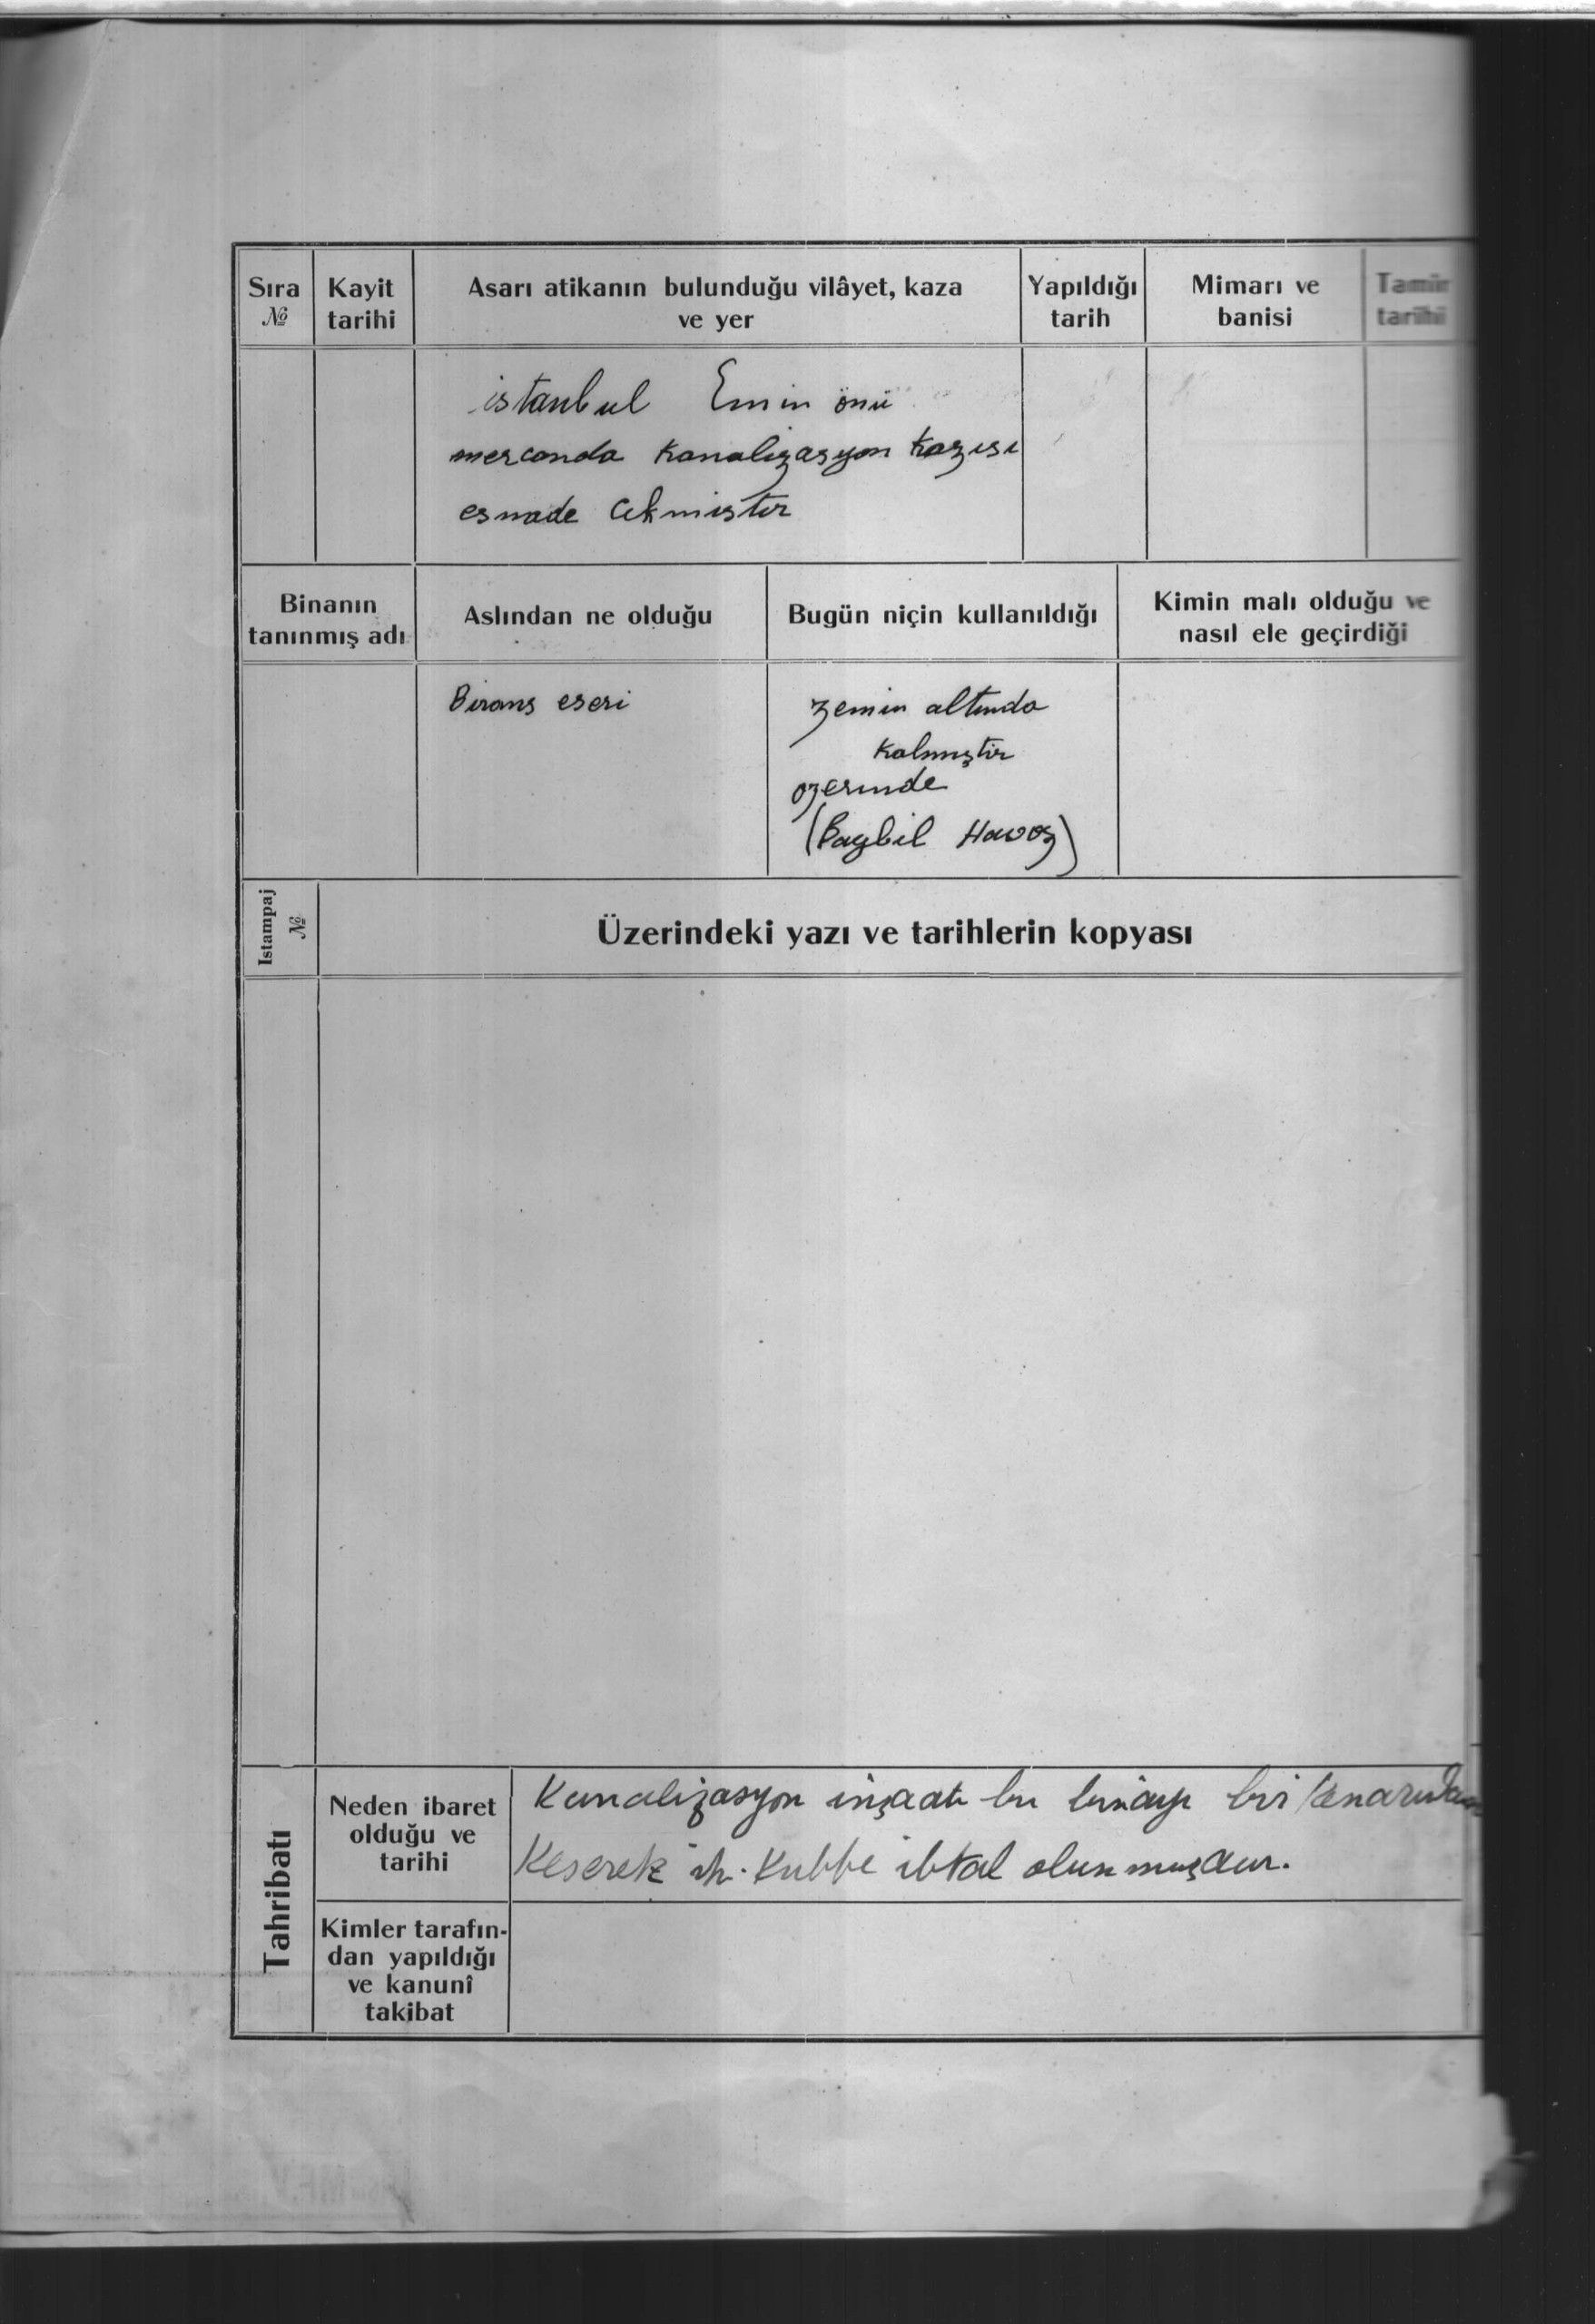 Sıra № Kayit tarihi Asarı atikanın bulunduğu vilâyet, kaza ve yer Yapıldığı tarih Mimarı ve banisi Tamir tarihi
istanbul Emin önü
mercanda Kanalizasyon Kazısı
esnade Cekmistir
Binanın tanınmış adı Aslından ne olduğu Bugün niçin kullanıldığı Kimin malı olduğu ve nasıl ele geçirdiği
Birans eseri
zemin altında
Kalmıştir
ozerinde
(Baybil Havoz)
Istampaj №
Üzerindeki yazı ve tarihlerin kopyası
Tahribatı
Neden ibaret
olduğu ve
tarihi
Kanalizasyon inşaatı bu binayı bir kenarından
Keserek Kubbe ibtal olunmuşdur.
Kimler tarafın-
dan yapıldığı
ve kanunî
takibat